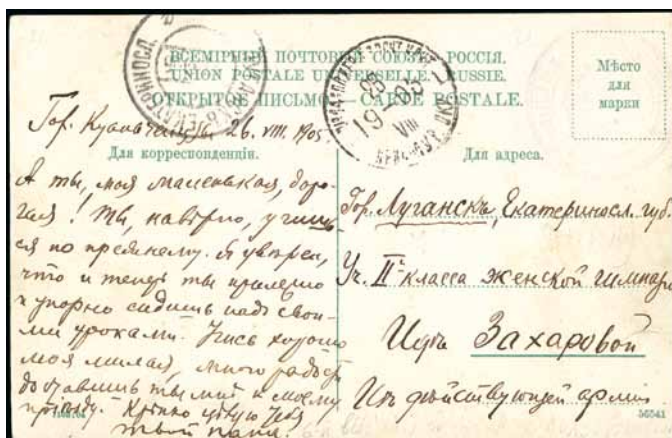 ВСЕМІРНЫЙ ПОЧТОВЫЙ СОЮЗЪ. РОССІЯ.
UNION POSTALE UNIVERSELLE. RUSSIE.
ОТКРЫТОЕ ПИСЬМО — CARTE POSTALE.
Мѣсто
для
марки
Гор. 26. VIII. 1905
Для корреспонденціи.
А ты, моя маленькая, доро-
гая! Ты, навѣрно, учишь
ся по прежнему. Я увѣрен,
что и теперь ты прилежно
и упорно сидишь надъ свои-
ми уроками. Учись хорошо
моя милая, много радости
доставишь ты мнѣ к моему
приѣзду. Крѣпко цѣлую тебя
твой папа.
Для адреса.
Гор. Луганскъ, Екатериносл. губ.
Уч. II класса женской гимназ
Идѣ Захаровой
Изъ дѣйствующей арміи
56543
25
VIII